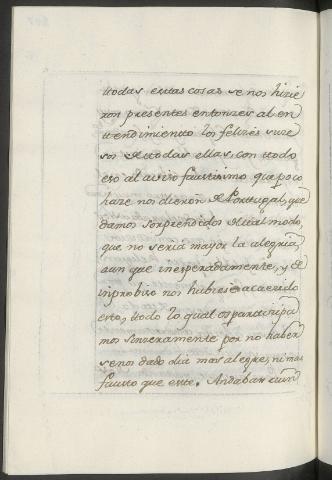 todas estas cosas se nos hizie
ron presentes entonzes al en
tendimiento los felizes suze
sos de todas ellas, con todo
eso al aviso faustisimo que poco
haze nos dieron de Portugal, que
damos sorprendidos de tal modo,
que no seria mayor la alegria,
aun que inesperadamente, y de
inprobiso nos hubiese acaezido
esto, todo lo qual os participa
mos sinzeramente por no haber
senos dado dia mas alegre, ni mas
fausto que este. Andaban